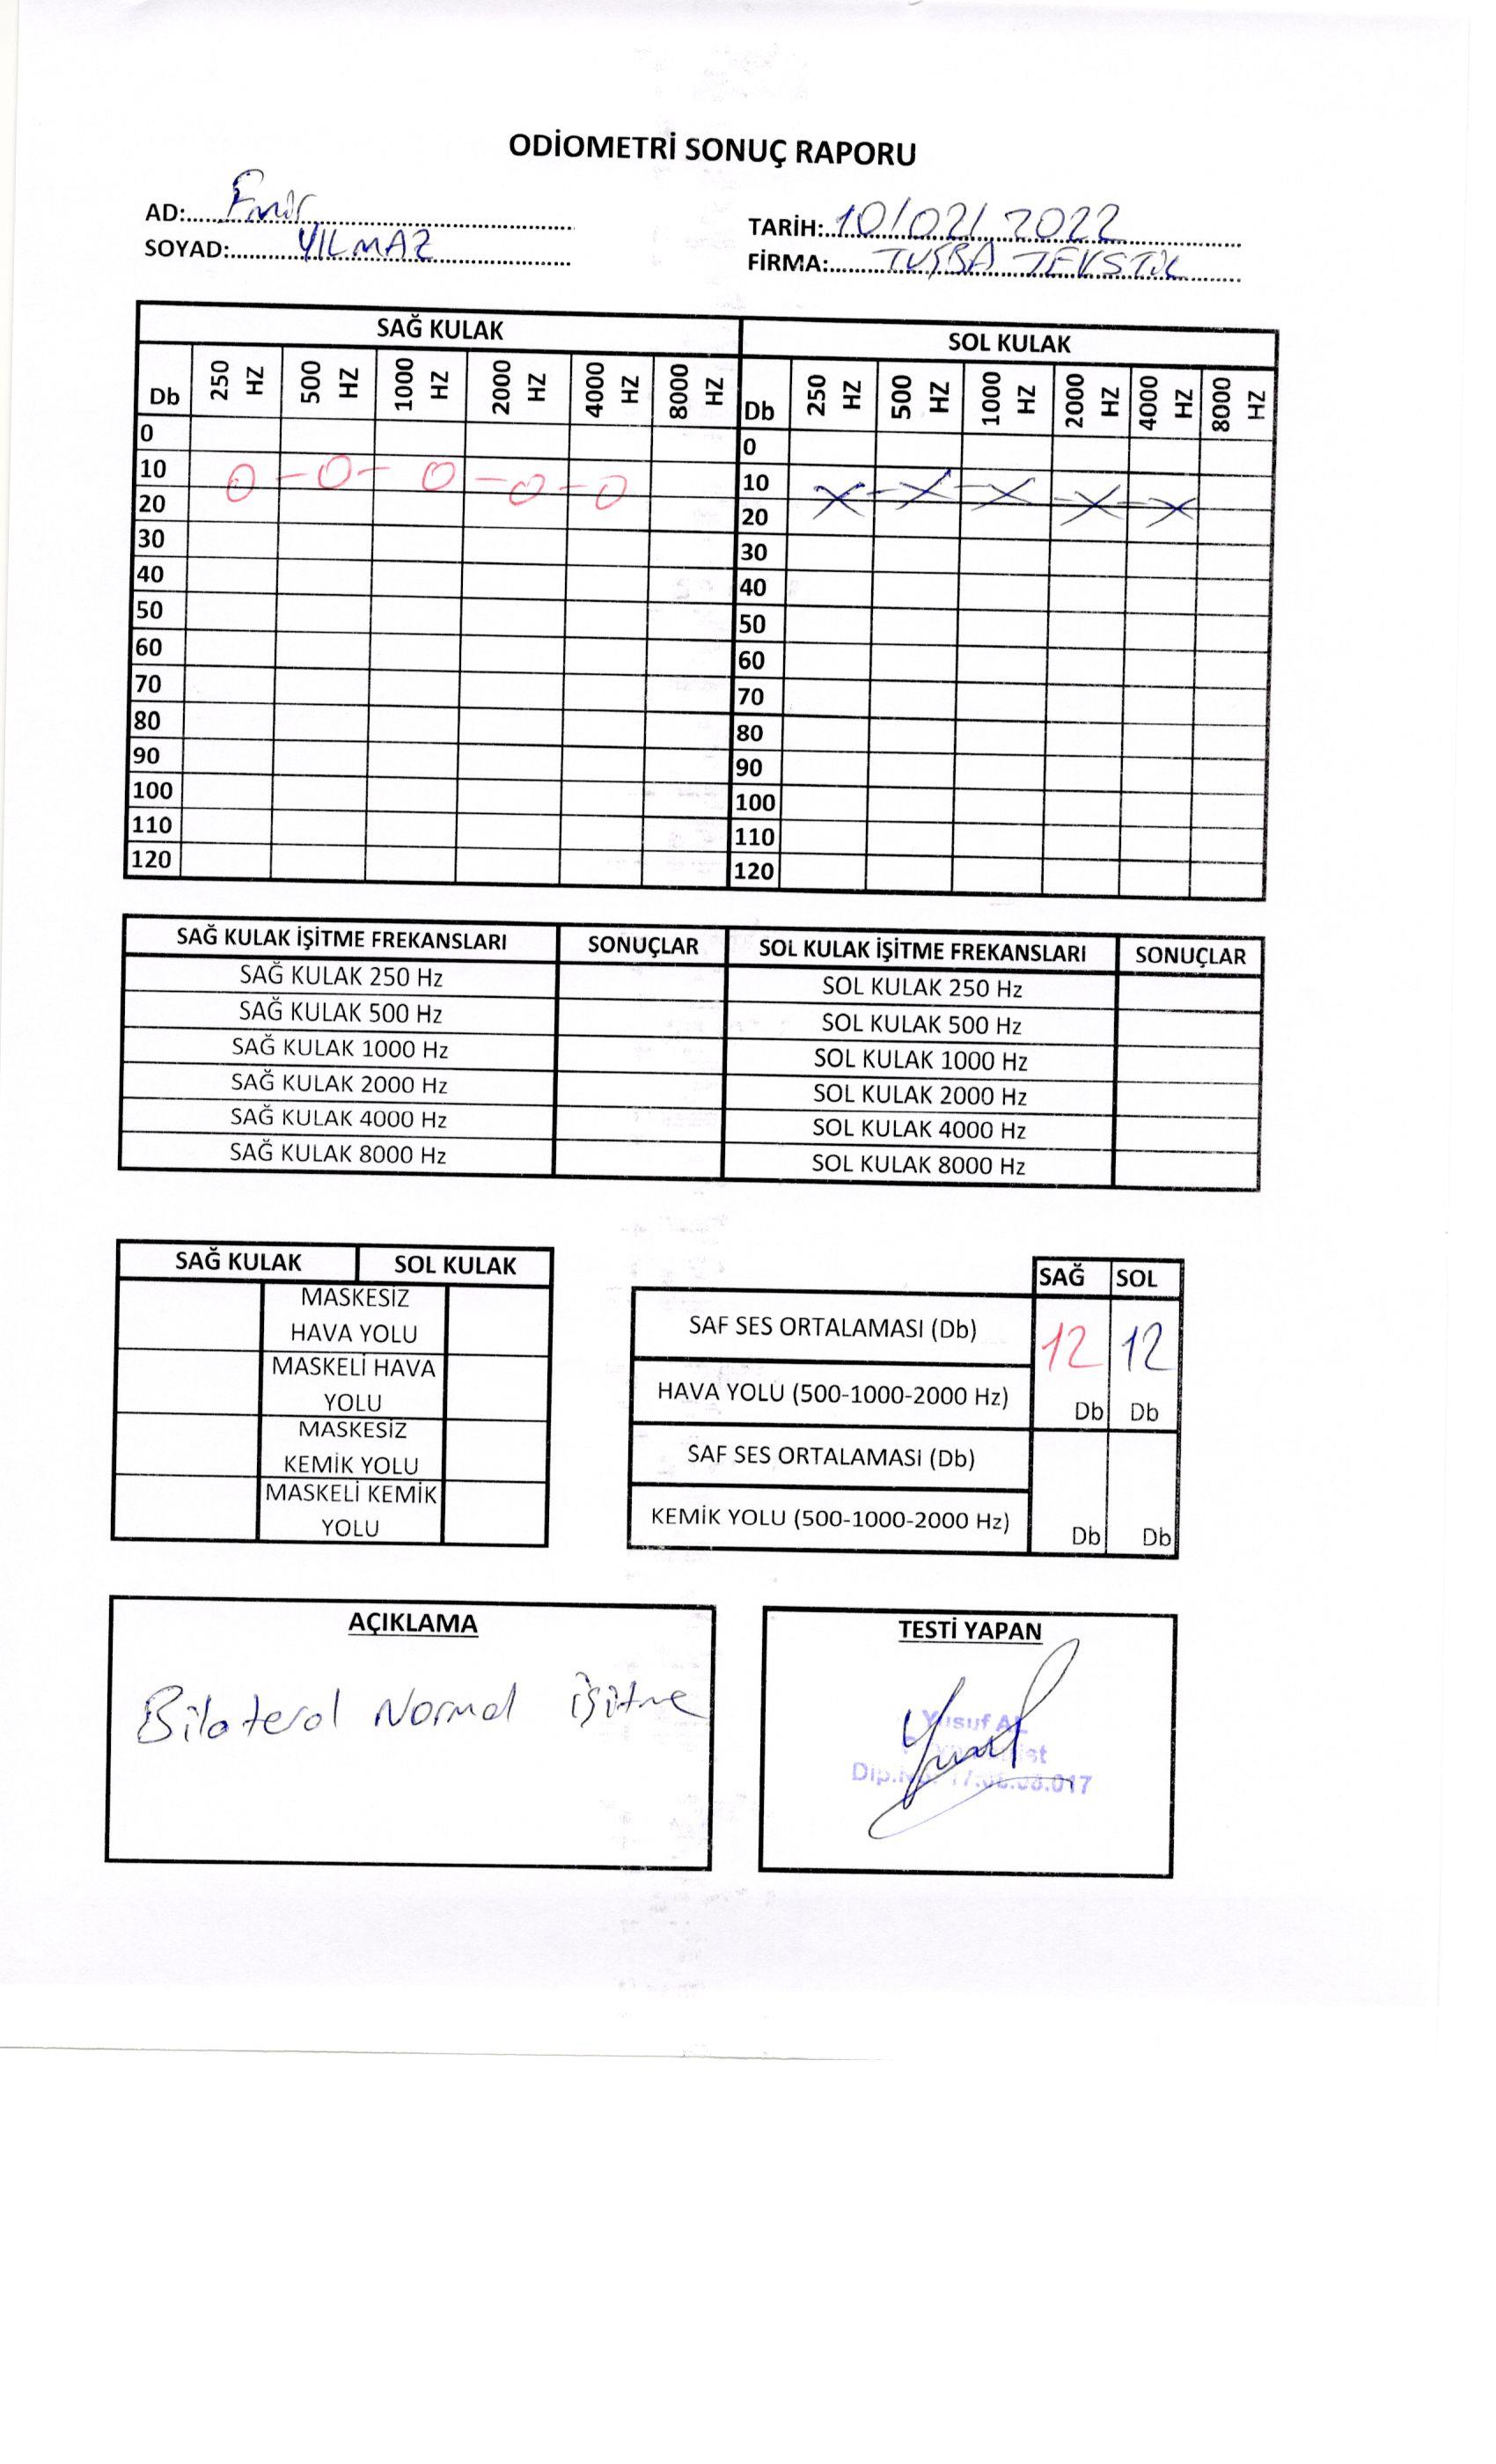 ODİOMETRİ SONUÇ RAPORU
AD: Emir
SOYAD: YILMAZ
TARİH: 10/02/2022
FİRMA: TUĞBA TEKSTİL
SAĞ KULAK SOL KULAK
Db 250 HZ 500 HZ 1000 HZ 2000 HZ 4000 HZ 8000 HZ Db 250 HZ 500 HZ 1000 HZ 2000 HZ 4000 HZ 8000 HZ
0 0
10 O - O - O - O - O 10 X - X - X - X - X
20 20
30 30
40 40
50 50
60 60
70 70
80 80
90 90
100 100
110 110
120 120
SAĞ KULAK İŞİTME FREKANSLARI SONUÇLAR SOL KULAK İŞİTME FREKANSLARI SONUÇLAR
SAĞ KULAK 250 Hz SOL KULAK 250 Hz
SAĞ KULAK 500 Hz SOL KULAK 500 Hz
SAĞ KULAK 1000 Hz SOL KULAK 1000 Hz
SAĞ KULAK 2000 Hz SOL KULAK 2000 Hz
SAĞ KULAK 4000 Hz SOL KULAK 4000 Hz
SAĞ KULAK 8000 Hz SOL KULAK 8000 Hz
SAĞ KULAK SOL KULAK
MASKESİZ
HAVA YOLU
MASKELİ HAVA
YOLU
MASKESİZ
KEMİK YOLU
MASKELİ KEMİK
YOLU
SAĞ SOL
SAF SES ORTALAMASI (Db) 12 12
HAVA YOLU (500-1000-2000 Hz) Db Db
SAF SES ORTALAMASI (Db)
KEMİK YOLU (500-1000-2000 Hz) Db Db
AÇIKLAMA
Bilateral Normal işitme
TESTİ YAPAN
Yusuf AL
Dip.